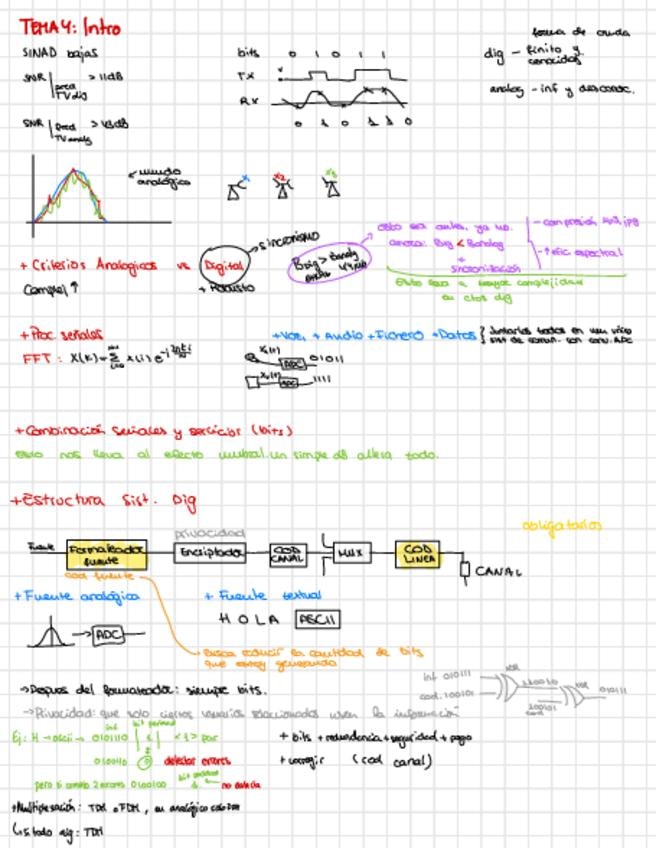 TEMA 4: Intro
SINAD bajas
SNR | pred TV dig > 11dB
SNR | pred TV analg > 43dB
bits 0 1 0 1 1
TX
RX
0 1 0 1 1 0
forma de onda
dig - finito y conocidos
analog - inf y desconoc.
mundo analógico
x1 x2 x3
+ Criterios Analogicos vs Digital
sincronismo
Compl ↑
+ Robusto
esto era antes, ya no.
ahora: Bdig < Banalog
+ sincronización
- compresión .jpg
- ↑ efic espectral
Esto lleva a mayor complejidad
en ctos dig
+ Proc. señales
FFT: X(k) = Σ x(i) e
+ Voz, + Audio + Fichero + Datos } Juntarlos todos en un único
sist de comun. con conv. ADC
x1(t) ADC 01011
x2(t) ADC 1111
+ Combinación señales y servicios (bits)
Esto nos lleva al efecto umbral. un simple dB altera todo.
+ Estructura Sist. Dig
obligatorios
privacidad
Fuente Formateador fuente Encriptador COD CANAL MUX COD LINEA
CANAL
cod fuente
+ Fuente analógica
+ Fuente textual
HOLA ASCII
ADC
Busca reducir la cantidad de bits
que estoy generando
→ Despues del formateador: siempre bits.
inf 010111
cod. 100101
XOR
XOR
100101
cod
010111
→ Privacidad: que solo ciertos usuarios seleccionados usen la información
Ej: H → ascii → 0101110 | 1 par
+ bits + redundancia + seguridad + pago
detectar errores
+ corregir (cod canal)
pero si cometo 2 errores 0100100
no detecta
+ Multiplexación: TDM o FDM, en analógico solo FDM
↳ si todo dig: TDM